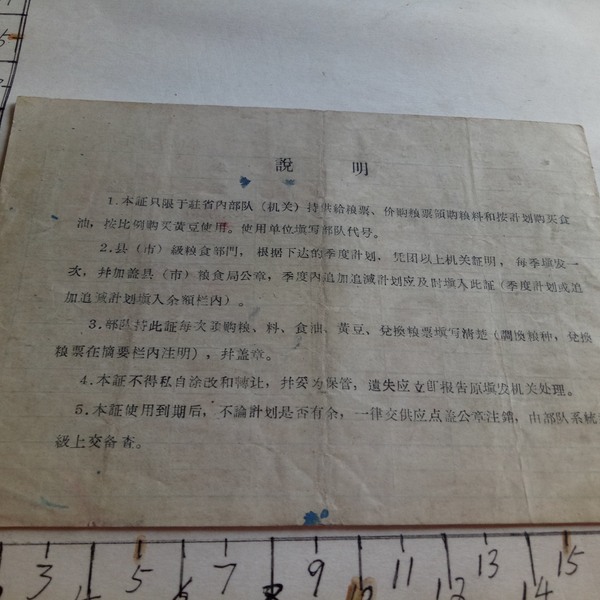 說 明
1.本証只限于駐省內部队（机关）持供給粮票、价購粮票領購粮料和按計划購买食
油，按比例購买黃豆使用。使用单位填写部队代号。
2.县（市）級粮食部門，根据下达的季度計划，凭团以上机关証明，每季填发一
次，幷加蓋县（市）粮食局公章，季度內追加追減計划应及时填入此証（季度計划或追
加追減計划填入余額栏內）。
3.部队持此証每次領購粮、料、食油、黃豆、兌換粮票填写清楚（調換粮种，兌換
粮票在摘要栏內注明），幷蓋章。
4.本証不得私自涂改和轉让，幷妥为保管，遺失应立即报告原填发机关处理。
5.本証使用到期后，不論計划是否有余，一律交供应点蓋公章注銷，由部队系統
級上交备查。
3 5 7 9 11 13 15
12 14